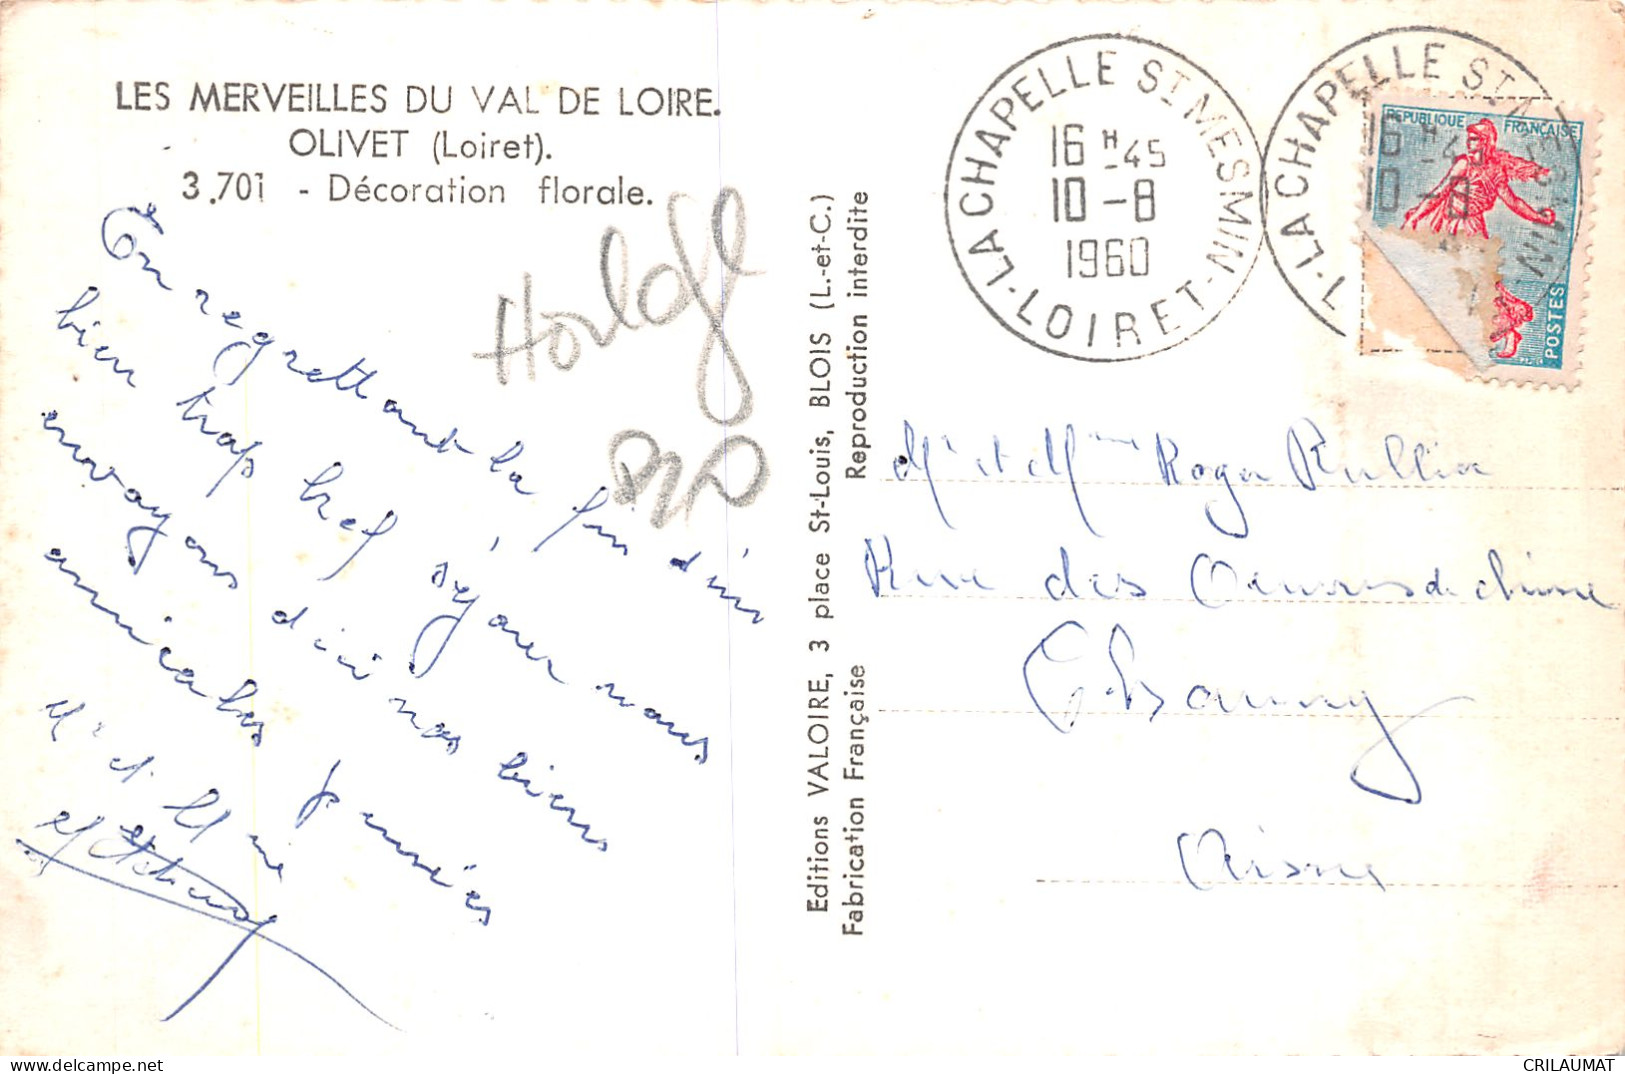 LES MERVEILLES DU VAL DE LOIRE.
OLIVET (Loiret).
3.701 - Décoration florale.
En regrettant la fin d'un
bien trop bref séjour nous
envoyons d'ici nos biens
amicales pensées
Mr et Mme
Horloge
Editions VALOIRE, 3 place St-Louis, BLOIS (L.-et-C.)
Fabrication Française Reproduction interdite
LA CHAPELLE ST MESMIN
LOIRET
16 H -45
10 -8
1960
LA CHAPELLE ST MESMIN
16 H -45
10 -8
REPUBLIQUE FRANÇAISE
POSTES
Mr et Mme Roger Rullier
Rue des Oeuvres de chisne
Chauny
Aisne
CRILAUMAT